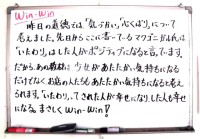 Win-Win
昨日の道徳では「気づかい」「心くばり」について
考えました。先日からここに書いているマツゴンがんれは
「いたわり」はした人がポジティブになると言っています。
だから、あの教材は 少女があたたかい気持ちになる
だけでなくお店の人たちもあたたかい気持ちになると考え
られます。「いたわり」ってされた人が幸せになり、した人も幸せ
になる。まさしくWin-Win!